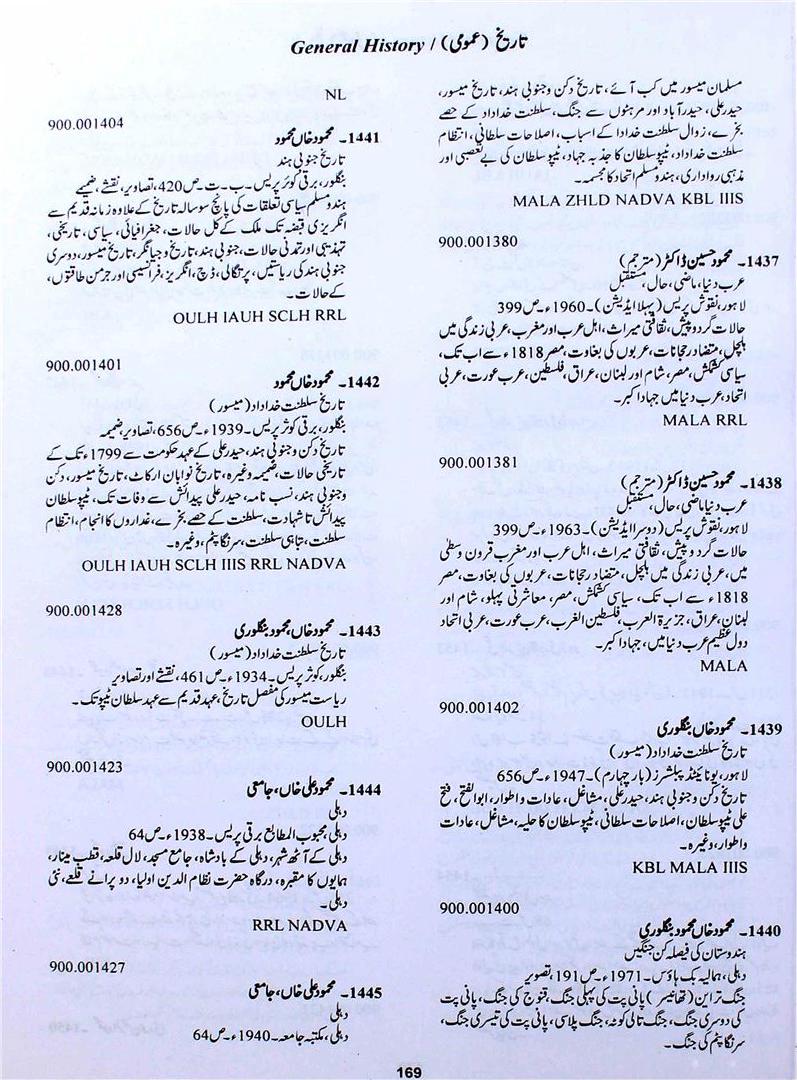 General History / تاریخ (عمومی)
مسلمان میسور میں کب آئے، تاریخ دکن و جنوبی ہند، تاریخ میسور،
حیدر علی، حیدرآباد اور مرہٹوں سے جنگ، سلطنت خداداد کے حصے
بخرے، زوال سلطنت خدادا کے اسباب، اصلاحات سلطانی، انتظام
سلطنت خداداد، ٹیپو سلطان کا جذبہ جہاد، ٹیپو سلطان کی بے تعصبی اور
مذہبی رواداری، ہندو مسلم اتحاد کا مجسمہ۔
MALA ZHLD NADVA KBL IIIS
900.001380
1437۔ محمود حسین ڈاکٹر (مترجم)
عرب دنیا، ماضی، حال مستقبل
لاہور، نقوش پریس (پہلا ایڈیشن)۔ 1960ء۔ ص 399
حالات گرد و پیش، ثقافتی میراث، اہل عرب اور مغرب، عربی زندگی میں
ہلچل، متضاد رجحانات، عربوں کی بغاوت، مصر 1818ء سے اب تک،
سیاسی کشمکش، مصر، شام اور لبنان، عراق، فلسطین، عرب عورت، عربی
اتحاد، عرب دنیا میں جہاد اکبر۔
MALA RRL
900.001381
1438۔ محمود حسین ڈاکٹر (مترجم)
عرب دنیا ماضی، حال، مستقبل
لاہور، نقوش پریس (دوسرا ایڈیشن)۔ 1963ء۔ ص 399
حالات گرد و پیش، ثقافتی میراث، اہل عرب اور مغرب قرون وسطیٰ
میں، عربی زندگی میں ہلچل، متضاد رجحانات، عربوں کی بغاوت، مصر
1818ء سے اب تک، سیاسی کشمکش، مصر، معاشرتی پہلو، شام اور
لبنان، عراق، جزیرۃ العرب، فلسطین الغرب، عرب عورت، عربی اتحاد
دول عظیم عرب دنیا میں، جہاد اکبر۔
MALA
900.001402
1439۔ محمود خاں بنگلوری
تاریخ سلطنت خداداد (میسور)
لاہور، یونائیٹڈ پبلشرز (بار چہارم)۔ 1947ء۔ ص 656
تاریخ دکن و جنوبی ہند، حیدر علی، مشاغل، عادات و اطوار، ابوالفتح، فتح
علی ٹیپو سلطان، اصلاحات سلطانی، ٹیپو سلطان کا حلیہ، مشاغل، عادات
و اطوار، وغیرہ۔
KBL MALA IIIS
900.001400
1440۔ محمود خاں محمود بنگلوری
ہندوستان کی فیصلہ کن جنگیں
دہلی، ہمالیہ بک ہاؤس۔ 1971ء۔ ص 191، تصویر
جنگ تراین (تھانیسر) پانی پت کی پہلی جنگ، قنوج کی جنگ، پانی پت
کی دوسری جنگ، جنگ تالی کوٹہ، جنگ پلاسی، پانی پت کی تیسری جنگ،
سرنگا پٹم کی جنگ۔
NL
900.001404
1441۔ محمود خاں محمود
تاریخ جنوبی ہند
بنگلور، برقی کوثر پریس۔ ب۔ ت۔ ص 420، تصاویر، نقشے، ضمیمے
ہندو مسلم سیاسی تعلقات کی پانچ سو سالہ تاریخ کے علاوہ زمانہ قدیم سے
انگریزی قبضہ تک ملک کے کل حالات، جغرافیائی، سیاسی، تاریخی،
تہذیبی اور تمدنی حالات، جنوبی ہند، تاریخ وجیانگر، تاریخ میسور، دوسری
جنوبی ہند کی ریاستیں، پرتگالی، ڈچ، انگریز، فرانسیسی اور جرمن طاقتوں،
کے حالات۔
OULH IAUH SCLH RRL
900.001401
1442۔ محمود خاں محمود
تاریخ سلطنت خداداد (میسور)
بنگلور، برقی کوثر پریس۔ 1939ء۔ ص 656، تصاویر، ضمیمہ
تاریخ دکن و جنوبی ہند، حیدر علی کے عہد حکومت سے 1799ء تک کے
تاریخی حالات، ضمیمہ وغیرہ، تاریخ نوابان ارکاٹ، تاریخ میسور، دکن
و جنوبی ہند، نسب نامہ، حیدر علی پیدائش سے وفات تک، ٹیپو سلطان
پیدائش تا شہادت، سلطنت کے حصے بخرے، غداروں کا انجام، انتظام
سلطنت، تباہی سلطنت، سرنگا پٹم، وغیرہ۔
OULH IAUH SCLH IIIS RRL NADVA
900.001428
1443۔ محمود خاں، محمود بنگلوری
تاریخ سلطنت خداداد (میسور)
بنگلور، کوثر پریس۔ 1934ء۔ ص 461، نقشے اور تصاویر
ریاست میسور کی مفصل تاریخ، عہد قدیم سے عہد سلطان ٹیپو تک۔
OULH
900.001423
1444۔ محمود علی خاں، جامعی
دہلی
دہلی، محبوب المطابع برقی پریس۔ 1938ء۔ ص 64
دہلی کے آٹھ شہر، دہلی کے بادشاہ، جامع مسجد، لال قلعہ، قطب مینار،
ہمایوں کا مقبرہ، درگاہ حضرت نظام الدین اولیا، دو پرانے قلعے، نئی
دہلی۔
RRL NADVA
900.001427
1445۔ محمود علی خاں، جامعی
دہلی، مکتبہ جامعہ۔ 1940ء۔ ص 64
169